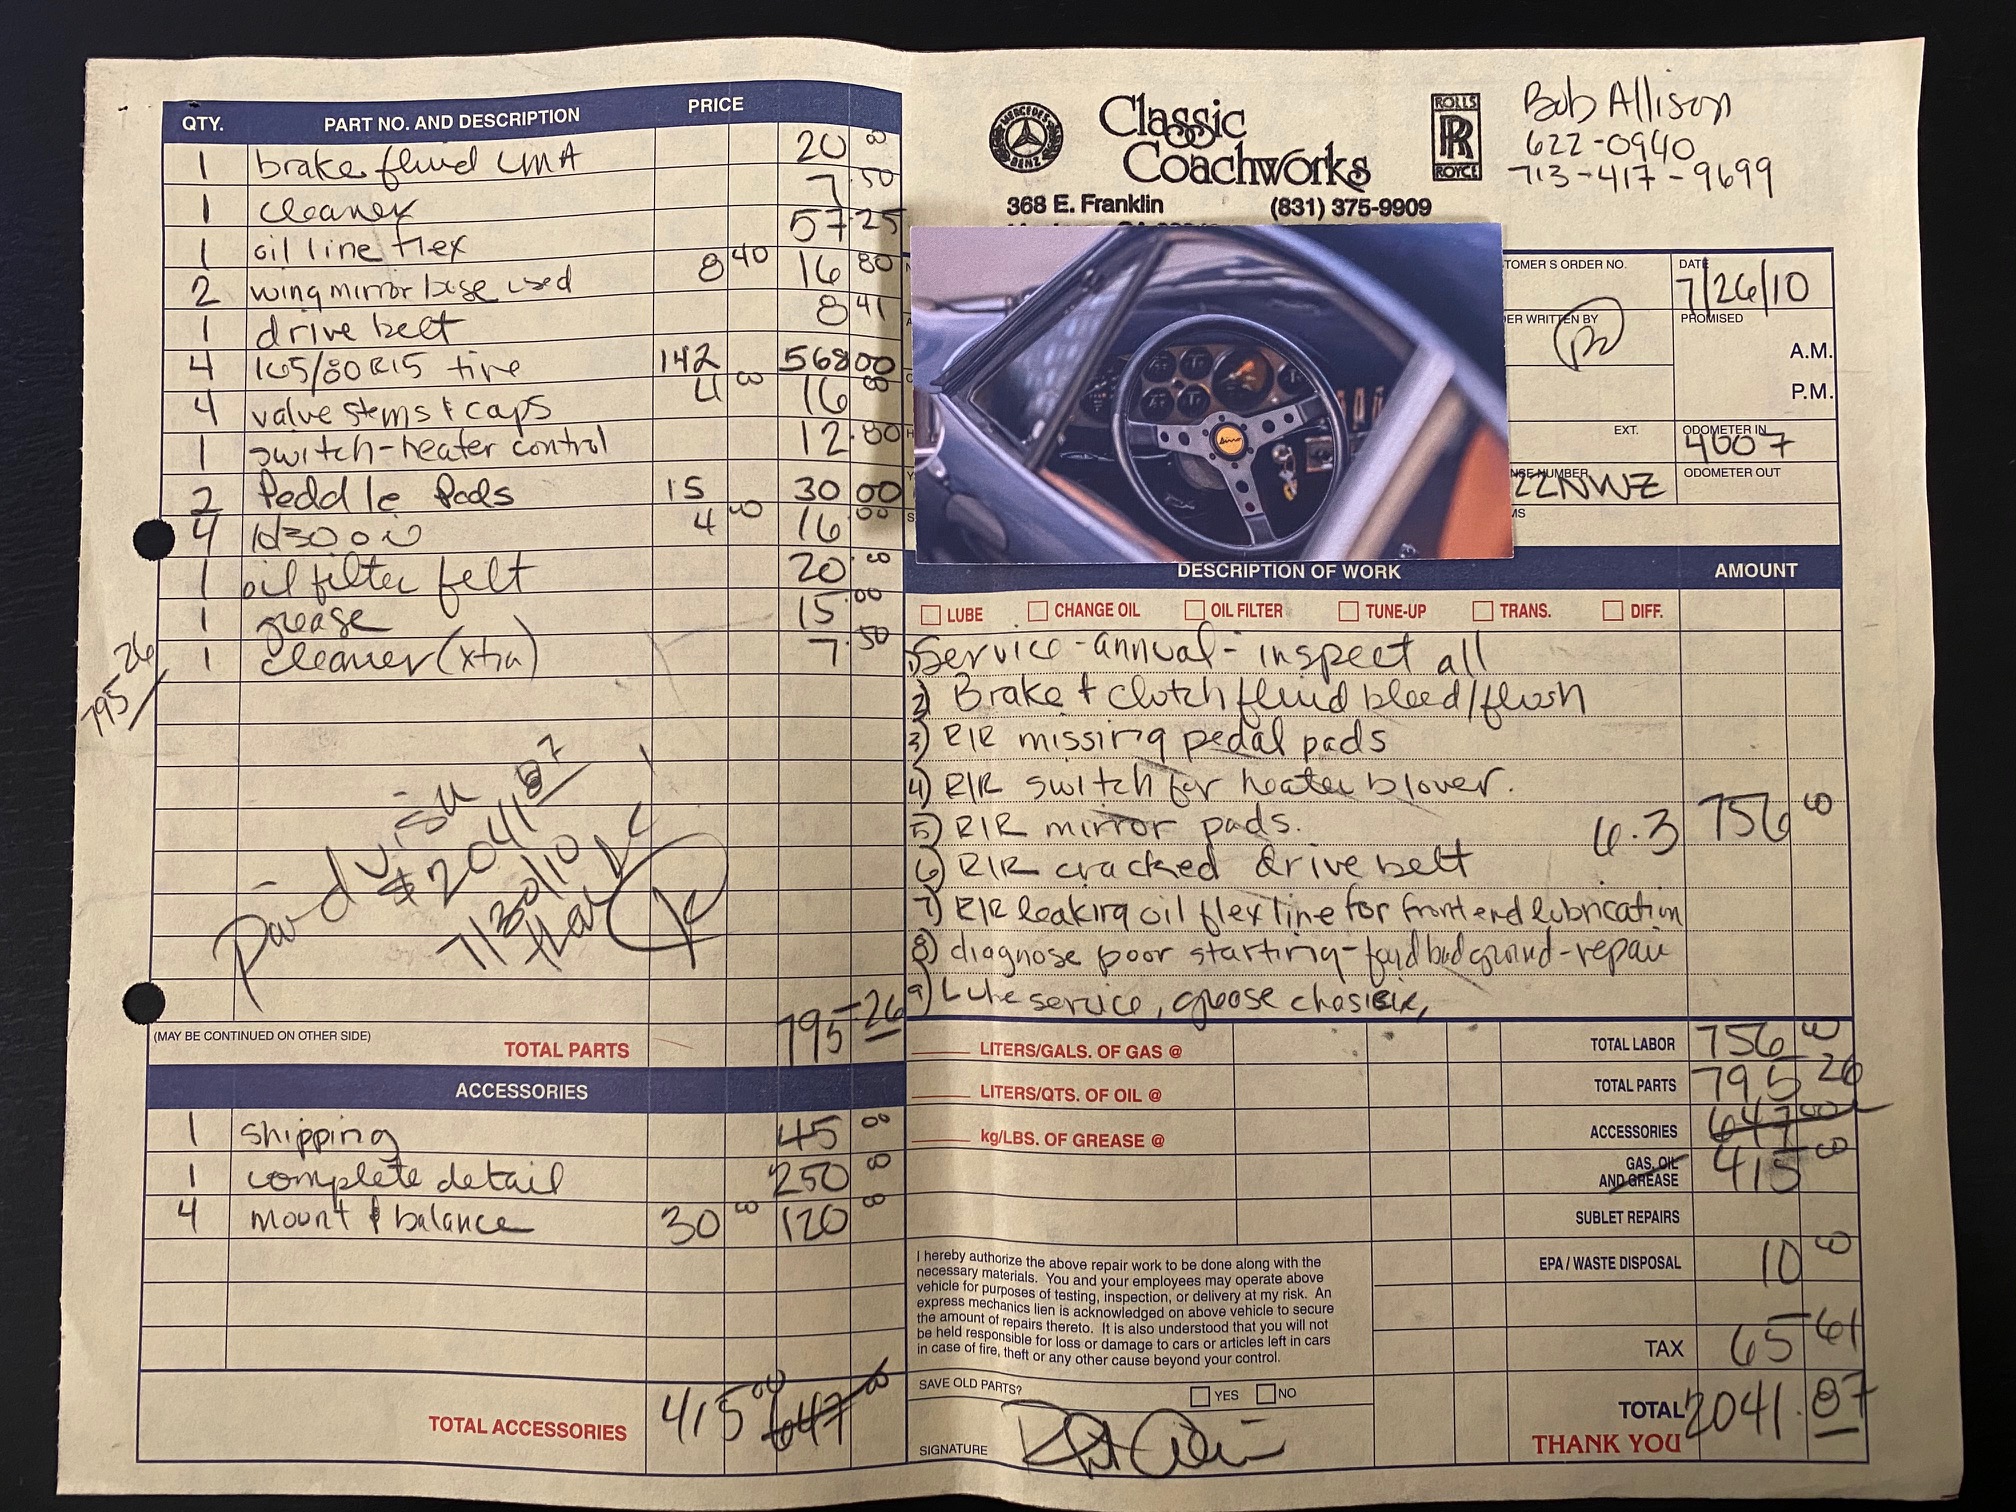 QTY. PART NO. AND DESCRIPTION PRICE
1 brake fluid LMA 20 00
1 cleaner 7.50
1 oil line flex 57.25
2 wing mirror base used 8 40 16 80
1 drive belt 8 41
4 165/80R15 tire 142 568 00
4 valve stems & caps 4 00 16 00
1 switch-heater control 12.80
2 Peddle Pads 15 30 00
4 Hd30 oil 4 00 16.00
1 oil filter felt 20.00
1 grease 15.00
1 cleaner (xtra) 7.50
795 26
paid visa
$2041 87
7/30/10
(MAY BE CONTINUED ON OTHER SIDE)
TOTAL PARTS 795 26
ACCESSORIES
1 shipping 45 00
1 complete detail 250 00
4 mount & balance 30 00 120 00
TOTAL ACCESSORIES 415 00 647 00
MERCEDES BENZ
Classic
Coachworks
ROLLS
RR
ROYCE
368 E. Franklin (831) 375-9909
Bob Allison
622-0940
713-417-9699
TOMER'S ORDER NO. DATE
7/26/10
ER WRITTEN BY PROMISED
A.M.
P.M.
EXT. ODOMETER IN
4007
NSE NUMBER ODOMETER OUT
22NWZ
MS
Dino
DESCRIPTION OF WORK AMOUNT
LUBE CHANGE OIL OIL FILTER TUNE-UP TRANS. DIFF.
1) Service-annual-inspect all
2) Brake & clutch fluid bleed/flush
3) R/R missing pedal pads
4) R/R switch for heater blower.
5) R/R mirror pads. 6.3 756 00
6) R/R cracked drive belt
7) R/R leaking oil flex line for front end lubrication
8) diagnose poor starting-found bad ground-repair
9) Lube service, grease chassis,
LITERS/GALS. OF GAS @ TOTAL LABOR 756 00
LITERS/QTS. OF OIL @ TOTAL PARTS 795 26
kg/LBS. OF GREASE @ ACCESSORIES 647 00
GAS, OIL
AND GREASE 415 00
SUBLET REPAIRS
EPA / WASTE DISPOSAL 10 00
TAX 65 61
TOTAL 2041.87
THANK YOU
I hereby authorize the above repair work to be done along with the
necessary materials. You and your employees may operate above
vehicle for purposes of testing, inspection, or delivery at my risk. An
express mechanics lien is acknowledged on above vehicle to secure
the amount of repairs thereto. It is also understood that you will not
be held responsible for loss or damage to cars or articles left in cars
in case of fire, theft or any other cause beyond your control.
SAVE OLD PARTS? YES NO
SIGNATURE